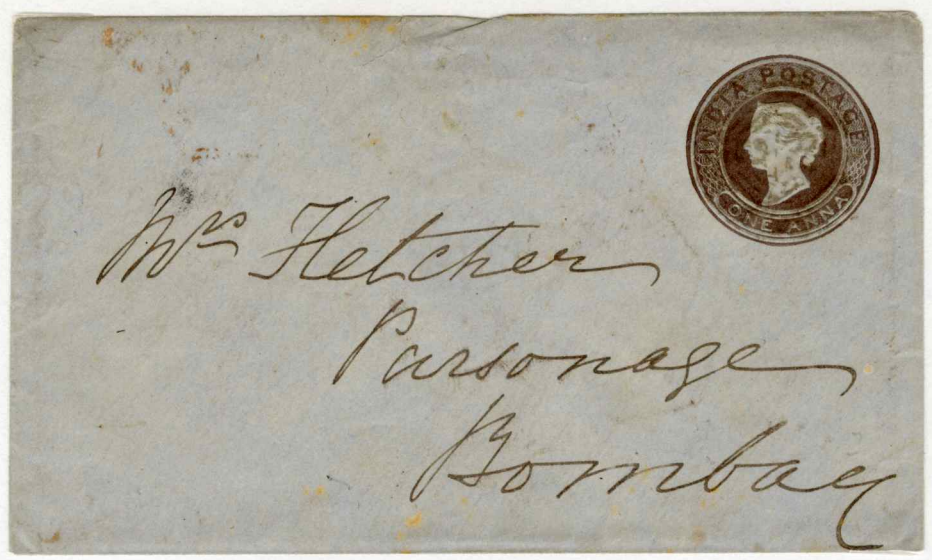 INDIA POSTAGE
ONE ANNA
Mrs Fletcher
Parsonage
Bombay